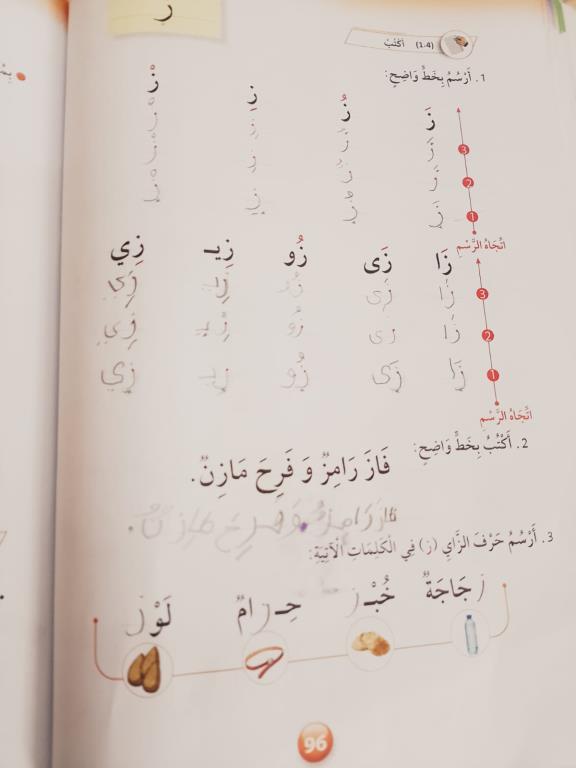 ر
(1-4) أَكْتُبُ
1. أَرْسُمُ بِخَطٍّ وَاضِحٍ:
زَ زُ زِ زْ
3
2
1
اتِّجَاهُ الرَّسْمِ
زَا زَى زُو زِيـ زِي
3
2
1
اتِّجَاهُ الرَّسْمِ
2. أَكْتُبُ بِخَطٍّ وَاضِحٍ:
فَازَ رَامِزٌ وَ فَرِحَ مَازِنٌ.
فاز رامز و فرح مازن.
3. أَرْسُمُ حَرْفَ الزَّايِ (ز) فِي الْكَلِمَاتِ الْآتِيَةِ:
زجَاجَةٌ خُبْـز حِـزامٌ لَوْز
96